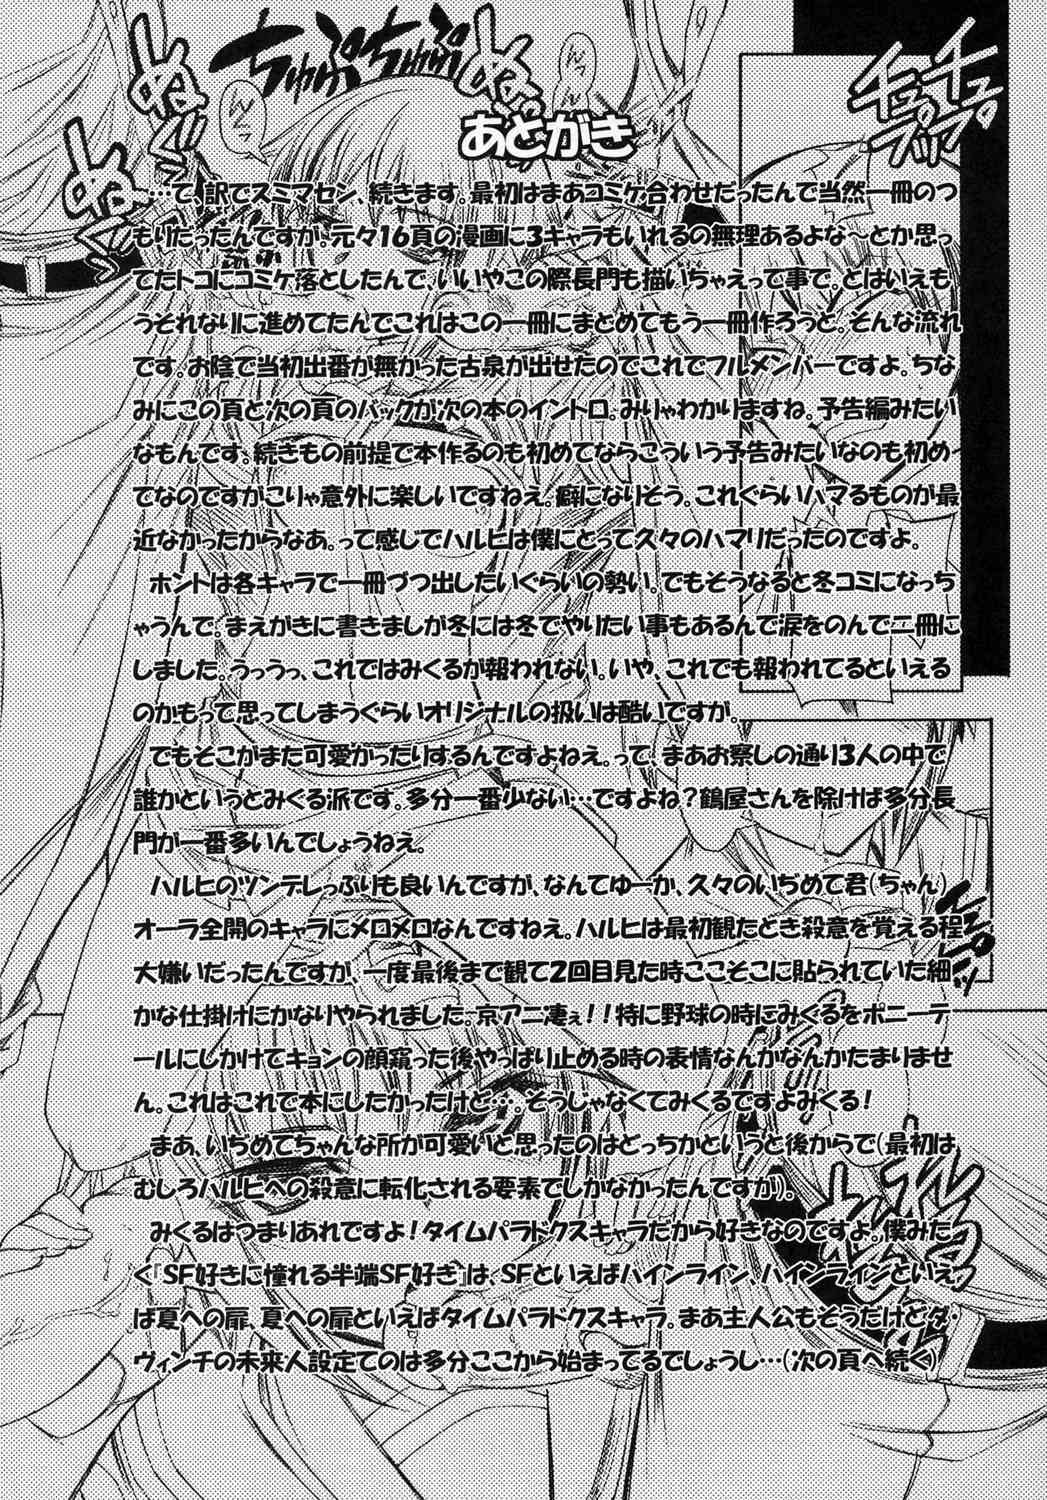 ちゅぷちゅぷ
ぬ
ぬ
チュプ
チュプ
あとがき
…て、訳でスミマセン、続きます。最初はまあコミケ合わせだったんで当然一冊のつ
もりだったんですが。元々16頁の漫画に3キャラもいれるの無理あるよな～とか思っ
てたトコにコミケ落としたんで、いいやこの際長門も描いちゃえって事で。とはいえも
うそれなりに進めてたんでこれはこの一冊にまとめてもう一冊作ろうと。そんな流れ
です。お陰で当初出番が無かった古泉が出せたのでこれでフルメンバーですよ。ちな
みにこの頁と次の頁のバックが次の本のイントロ。みりゃわかりますね。予告編みたい
なもんです。続きもの前提で本作るのも初めてならこういう予告みたいなのも初め
てなのですがこりゃ意外に楽しいですねえ。癖になりそう。これぐらいハマるものが最
近なかったからなあ。って感じでハルヒは僕にとって久々のハマりだったのですよ。
ホントは各キャラで一冊づつ出したいぐらいの勢い。でもそうなると冬コミになっち
ゃうんで。まえがきに書きましが冬には冬でやりたい事もあるんで涙をのんで二冊に
しました。うっうっ、これではみくるが報われない。いや、これでも報われてるといえる
のかもって思ってしまうぐらいオリジナルの扱いは酷いですが。
でもそこがまた可愛かったりするんですよねえ。って、まあお察しの通り3人の中で
誰かというとみくる派です。多分一番少ない…ですよね？鶴屋さんを除けば多分長
門が一番多いんでしょうねえ。
ハルヒのツンデレっぷりも良いんですが、なんてゆーか、久々のいぢめて君(ちゃん)
オーラ全開のキャラにメロメロなんですねえ。ハルヒは最初観たとき殺意を覚える程
大嫌いだったんですが、一度最後まで観て2回目見た時ここそこに貼られていた細
かな仕掛けにかなりやられました。京アニ凄ぇ！！特に野球の時にみくるをポニーテ
ールにしかけてキョンの顔窺った後やっぱり止める時の表情なんかなんかたまりませ
ん。これはこれで本にしたかったけど…。そうじゃなくてみくるですよみくる！
まあ、いぢめてちゃんな所が可愛いと思ったのはどっちかというと後からで(最初は
むしろハルヒへの殺意に転化される要素でしかなかったんですが)。
みくるはつまりあれですよ！タイムパラドクスキャラだから好きなのですよ。僕みた
く『SF好きに憧れる半端SF好き』は、SFといえばハインライン、ハインラインといえ
ば夏への扉、夏への扉といえばタイムパラドクスキャラ。まあ主人公もそうだけどダ・
ヴィンチの未来人設定てのは多分ここから始まってるでしょうし…(次の頁へ続く)